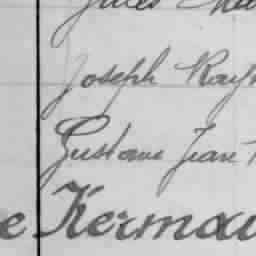 Jules
Joseph Ray
Gustave Jean
e Kermau